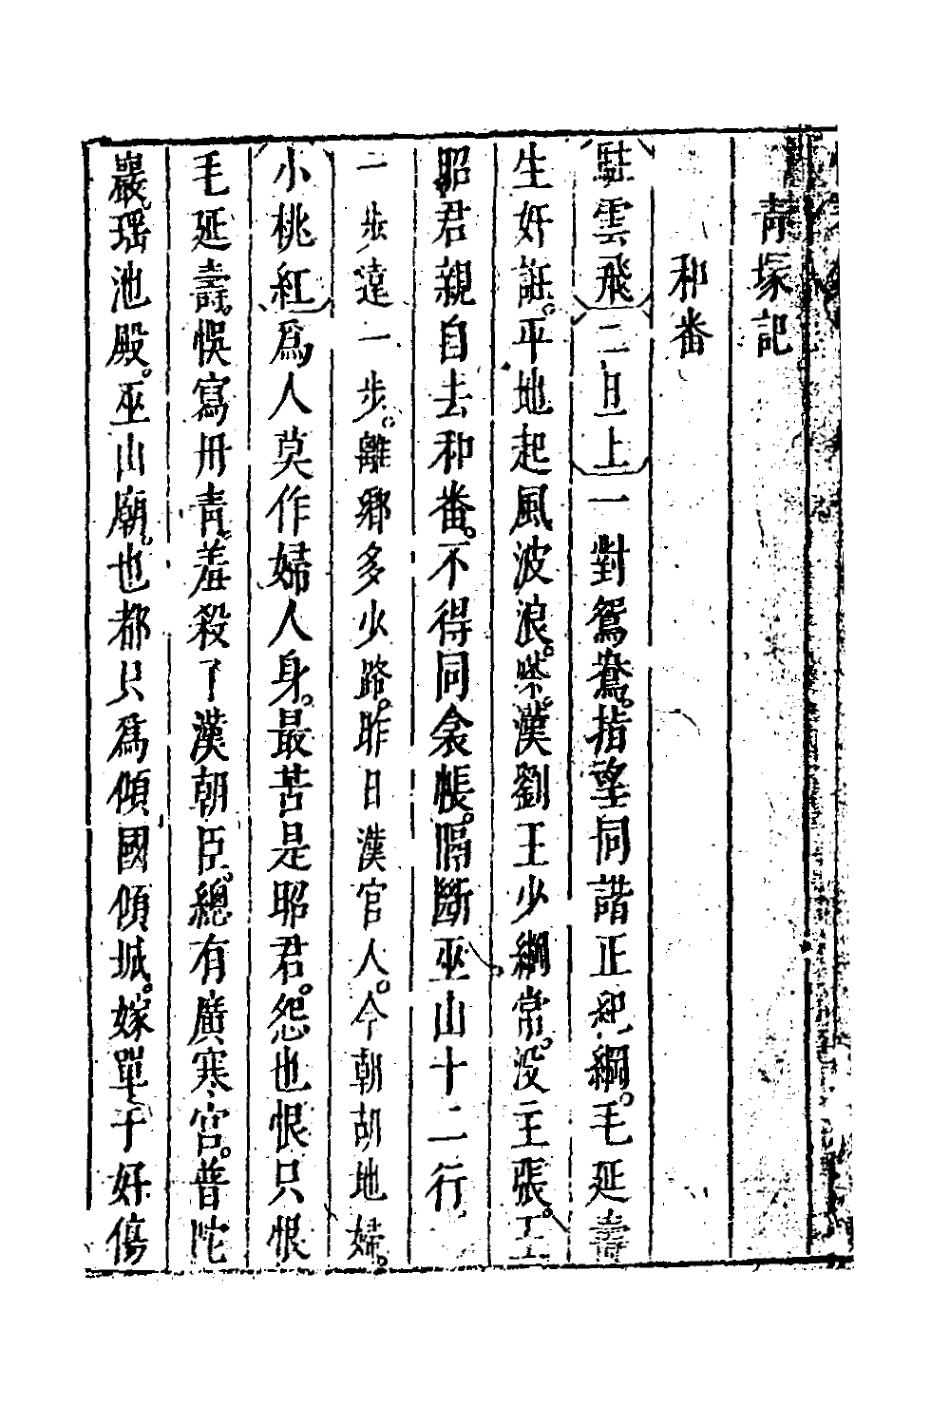 青塚記
和番
駐雲飛二旦上一對鴛鴦。指望同諧正紀綱。毛延壽
生奸詐。平地起風波浪。嗏。漢劉王少綱常。没主張。王
昭君親自去和番。不得同衾帳。隔斷巫山十二行
一步遠一步。離鄉多少路。昨日漢官人。今朝胡地婦。
小桃紅爲人莫作婦人身。最苦是昭君。怨也恨只恨
毛延壽。悞寫丹青。羞殺了漢朝臣。總有廣寒宫。普陀
巖。瑶池殿。巫山廟。也都只爲傾國傾城。嫁單于好傷